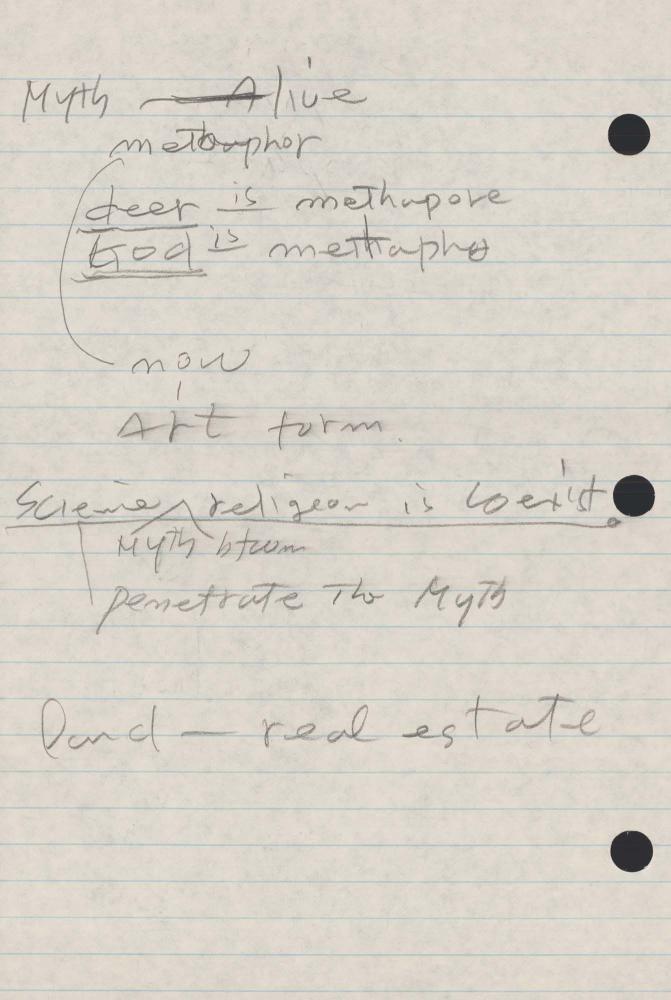 Myth — Alive
metaphor
deer is methapore
God is methapho
now
Art form.
Science religeon is coexist.
Myth btwen
penetrate the Myth
Land — real estate